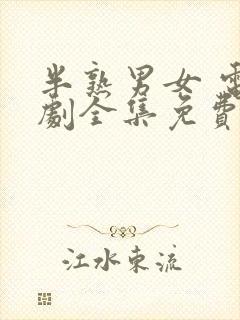 半熟男女 電
劇全集免費
江水東流